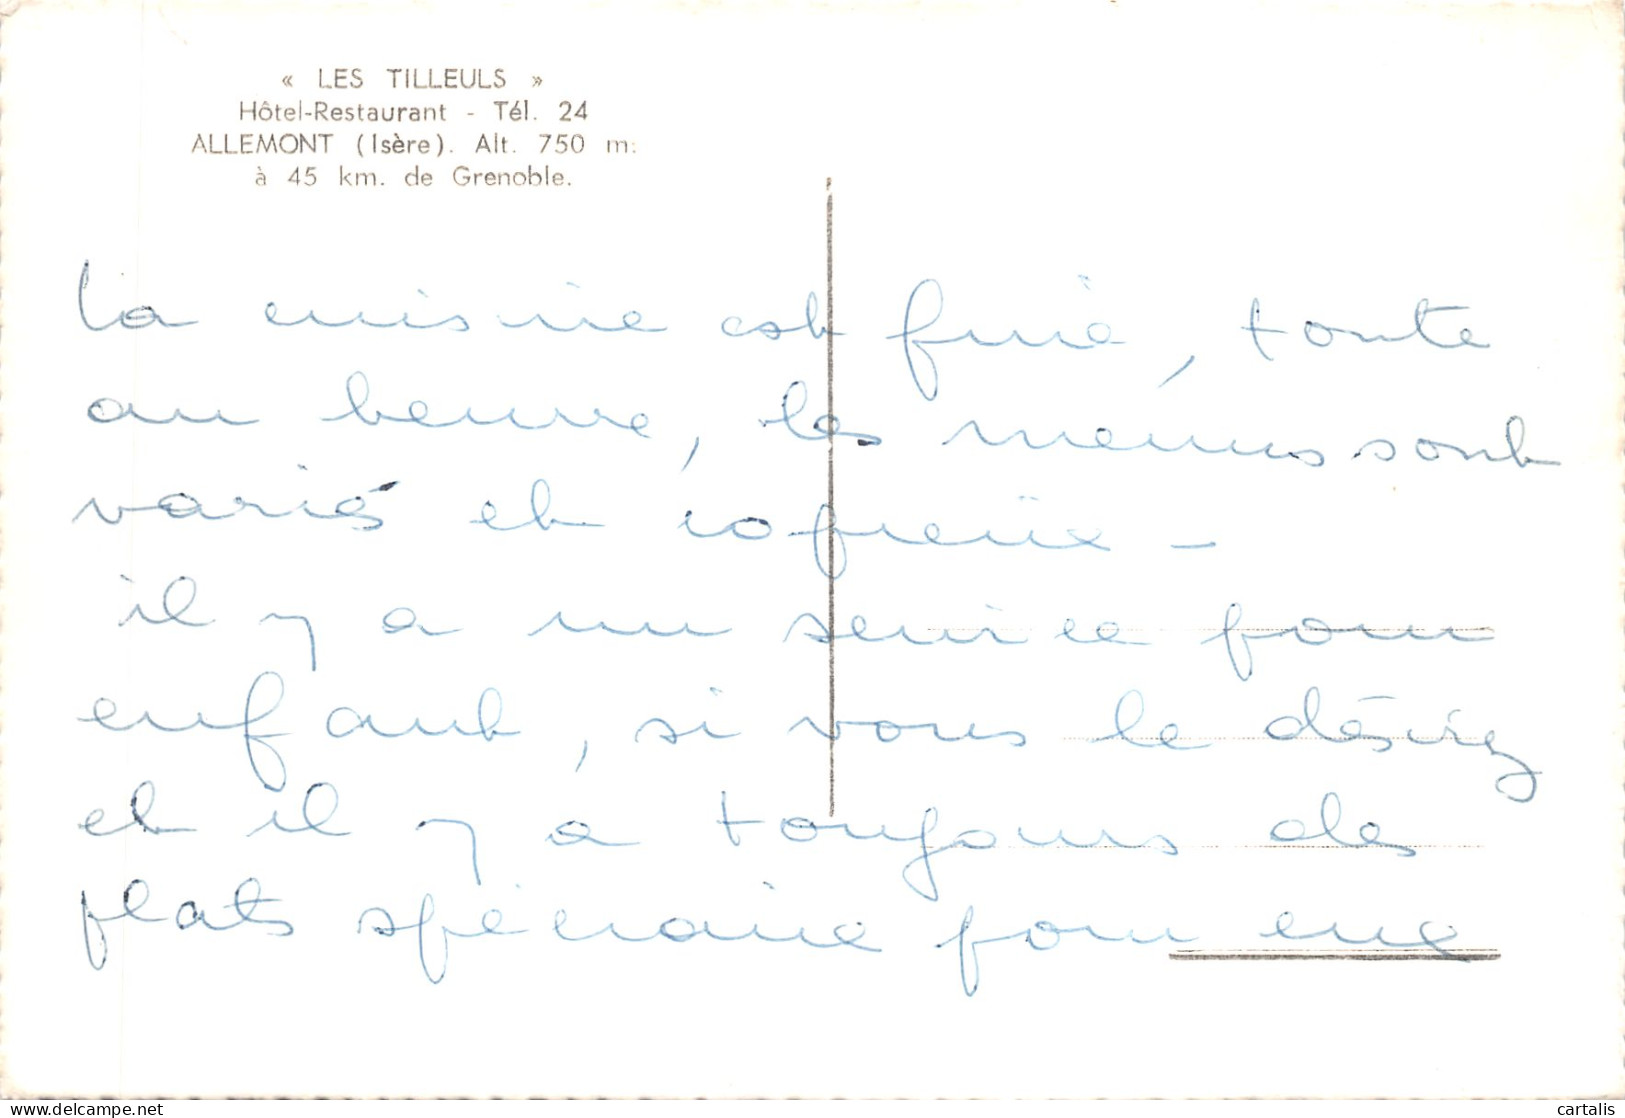 « LES TILLEULS »
Hôtel-Restaurant - Tél. 24
ALLEMONT (Isère). Alt. 750 m.
à 45 km. de Grenoble.
La cuisine est fine, toute
au beurre, les menus sont
variés et copieux -
il y a un service pour
enfant, si vous le désirez
et il y a toujours des
plats spéciaux pour eux
cartalis